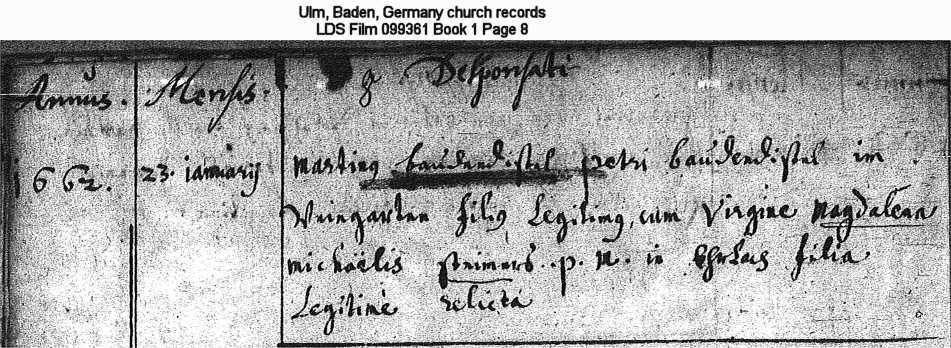 Ulm, Baden, Germany church records
LDS Film 099361 Book 1 Page 8
Annus. Mensis. Desponsati
1662. 23. januarij Martinus baudendistel petri baudendistel im
Weingarten filius Legitimus, cum Virgine Magdalena
michaëlis steimers p. M. in filia
Legitimè relicta